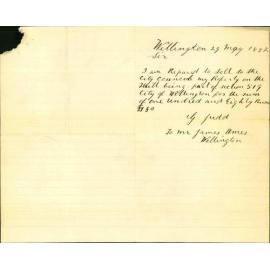 Wellington 29 May 1882
Sir
I am Prepared to sell to the
City Council my Property on the
being part of section 519
City of Wellington for the sum
of one Hundred and Eighty
G Judd
To Mr James Ames
Wellington